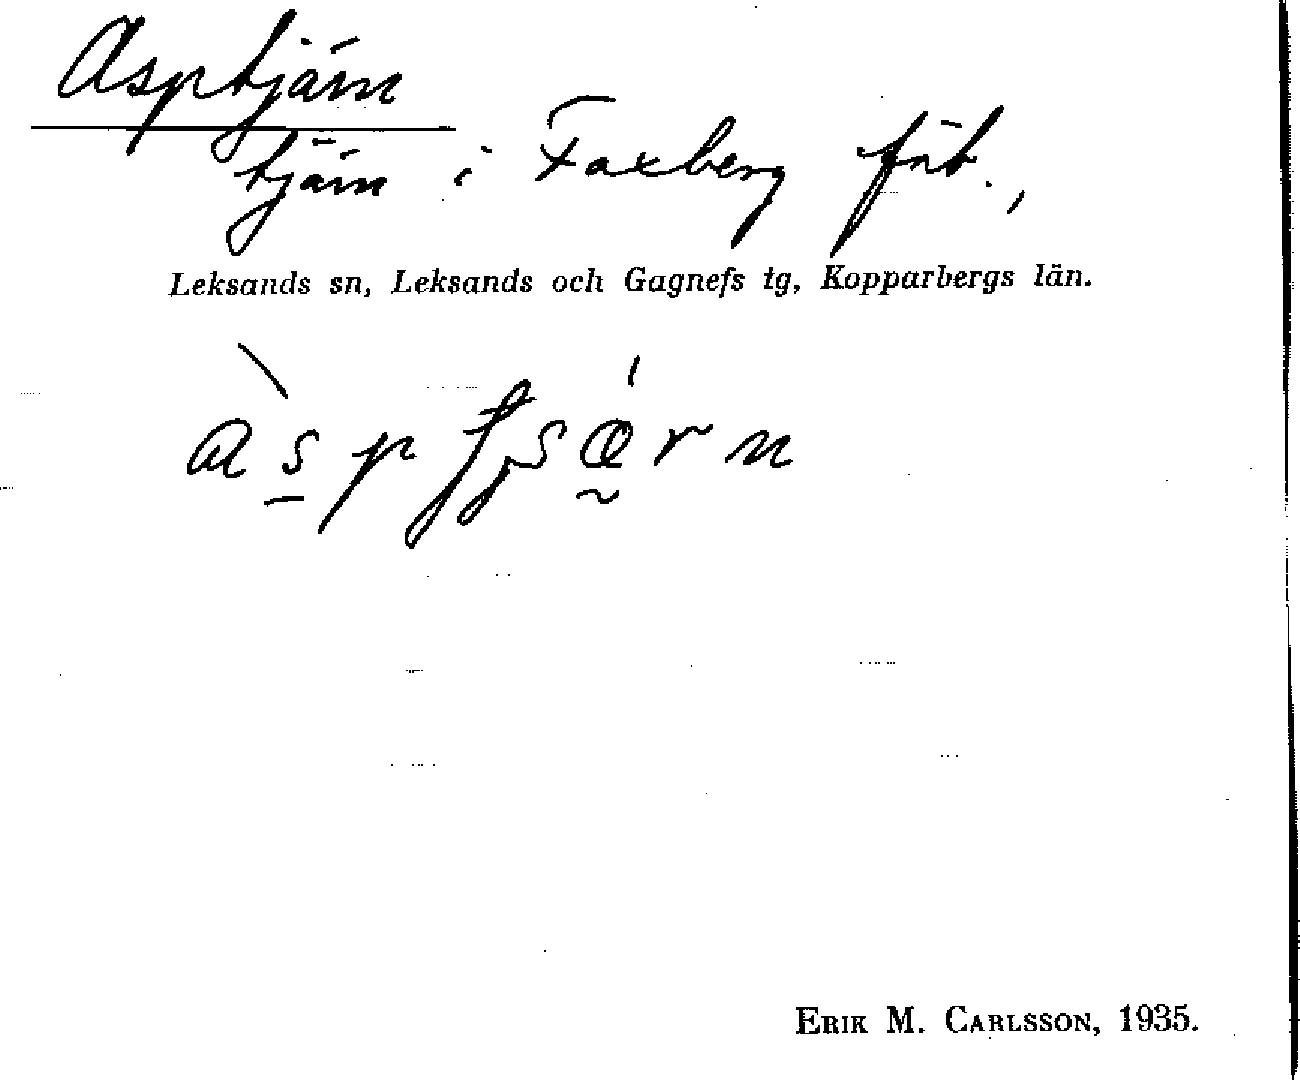 Asptjärn
tjärn i Faxberg fäb.,
Leksands sn, Leksands och Gagnefs tg, Kopparbergs län.
ERIK M. CARLSSON, 1935.